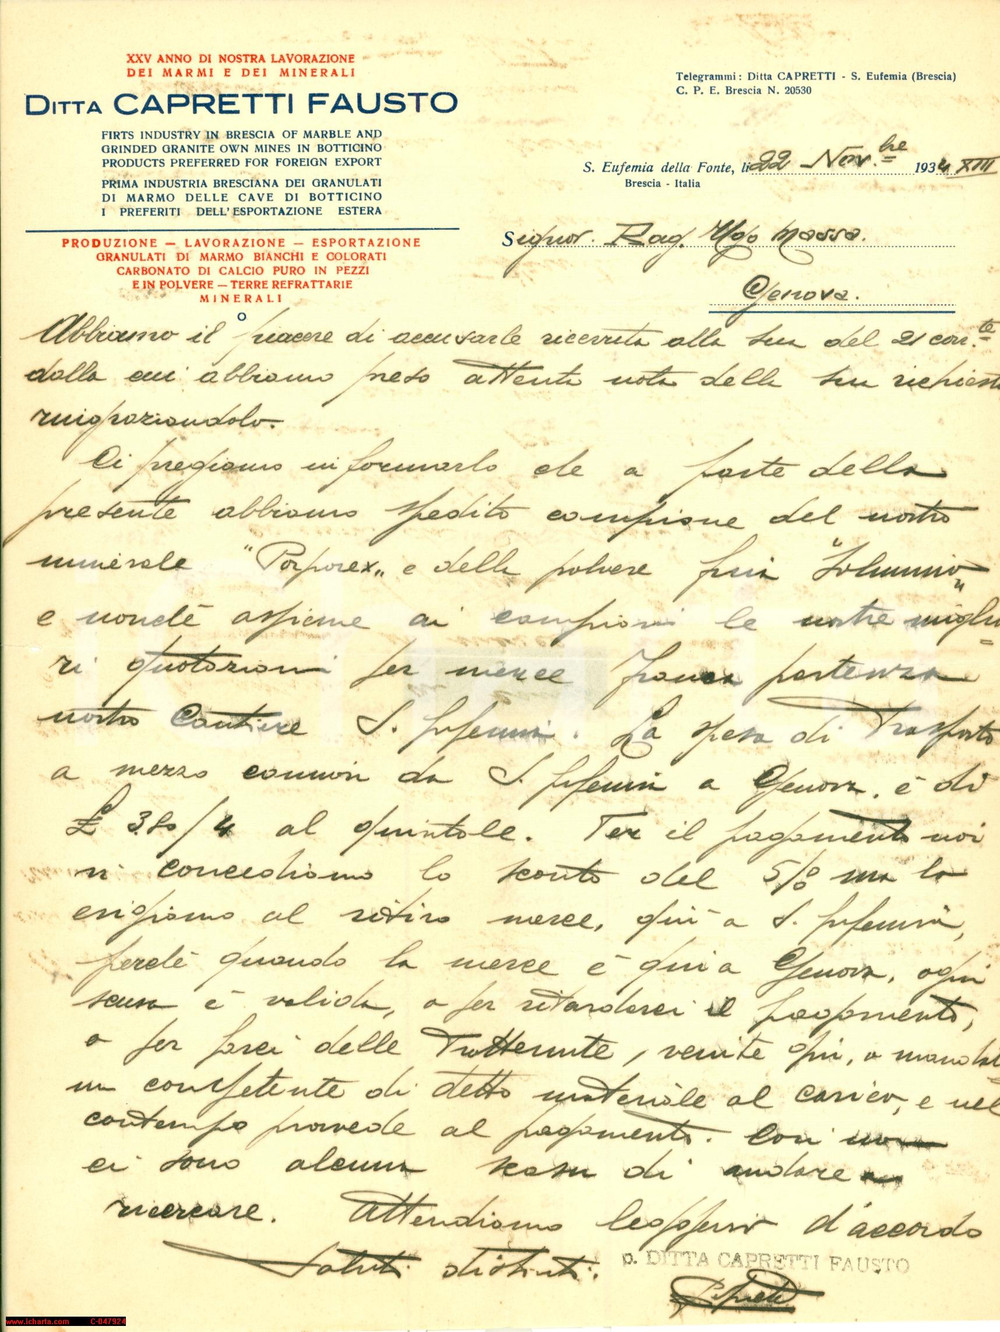 XXV ANNO DI NOSTRA LAVORAZIONE
DEI MARMI E DEI MINERALI
DITTA CAPRETTI FAUSTO
FIRTS INDUSTRY IN BRESCIA OF MARBLE AND
GRINDED GRANITE OWN MINES IN BOTTICINO
PRODUCTS PREFERRED FOR FOREIGN EXPORT
PRIMA INDUSTRIA BRESCIANA DEI GRANULATI
DI MARMO DELLE CAVE DI BOTTICINO
I PREFERITI DELL'ESPORTAZIONE ESTERA
PRODUZIONE — LAVORAZIONE — ESPORTAZIONE
GRANULATI DI MARMO BIANCHI E COLORATI
CARBONATO DI CALCIO PURO IN PEZZI
E IN POLVERE — TERRE REFRATTARIE
MINERALI
Telegrammi: Ditta CAPRETTI - S. Eufemia (Brescia)
C. P. E. Brescia N. 20530
S. Eufemia della Fonte, li 22 Nov.bre 1934 XIII
Brescia - Italia
Signor. Rag. Ugo Massa.
Genova.
Abbiamo il piacere di accusarle ricevuta alla sua del 21 corr.te
dalla cui abbiamo preso attenta nota della sua richiesta
ringraziandolo.
Ci pregiamo informarlo che a parte della
presente abbiamo spedito campione del nostro
minerale "Porporex" e della polvere
e nonchè assieme ai campioni le nostre miglio
ri quotazioni per merce franca partenza
nostro Cantiere S. Eufemia. La spesa di Trasporto
a mezzo camion da S. Eufemia a Genova, è di
£ 3.80/4 al quintale. Per il pagamento noi
vi concediamo lo sconto del 5% ma lo
esigiamo al ritiro merce, quì a S. Eufemia,
perchè quando la merce è quì a Genova, ogni
scusa è valida, o per ritardarci il pagamento,
o per farci delle Trattenute, venite qui, o mandate
un competente di detto materiale al carico, e nel
contempo provvede al pagamento. Così non
ci sono alcuna scusa di andare a
ricercare. Attendiamo leggervi d'accordo
Saluti distinti.
p. DITTA CAPRETTI FAUSTO
www.icharta.com C-047924